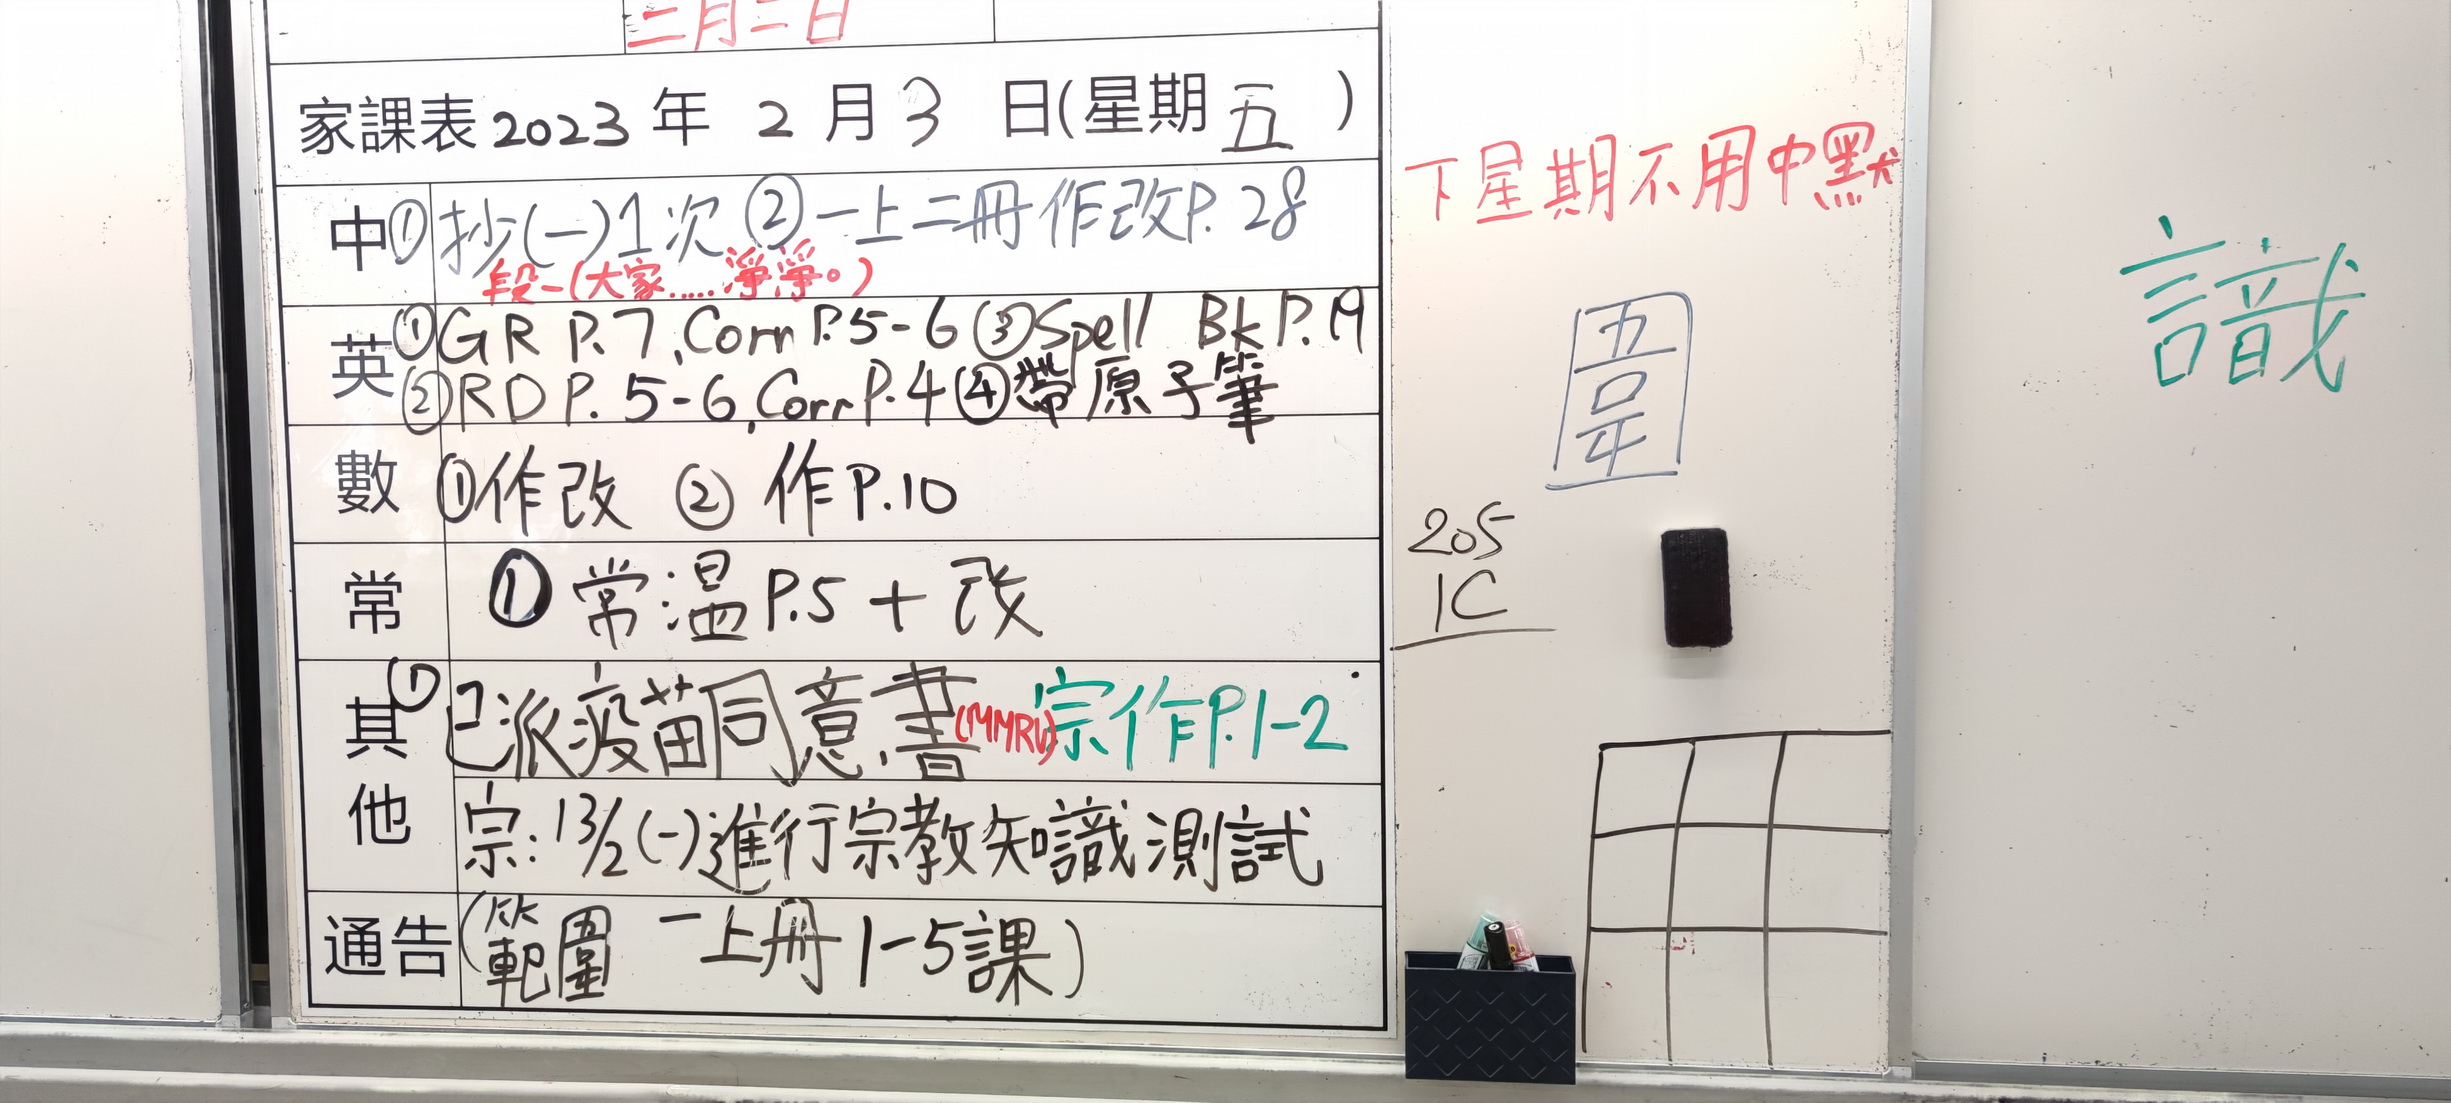 二月二日
家課表2023年 2月3 日(星期五 )
中 ①抄(一)1次 ②一上二冊作改P.28
段一(大家.....淨淨。)
英 ①GR P.7, Corr P.5-6 ③Spell Bk P.19
②RD P.5-6, Corr P.4 ④帶原子筆
數 ①作改 ② 作P.10
常 ① 常:温P.5 + 改
其他 ① 已派疫苗同意書(MMRV) 宗作P.1-2
宗: 13/2(一)進行宗教知識測試
通告 (範圍 一上冊 1-5課)
下星期不用中默
205
1C
識